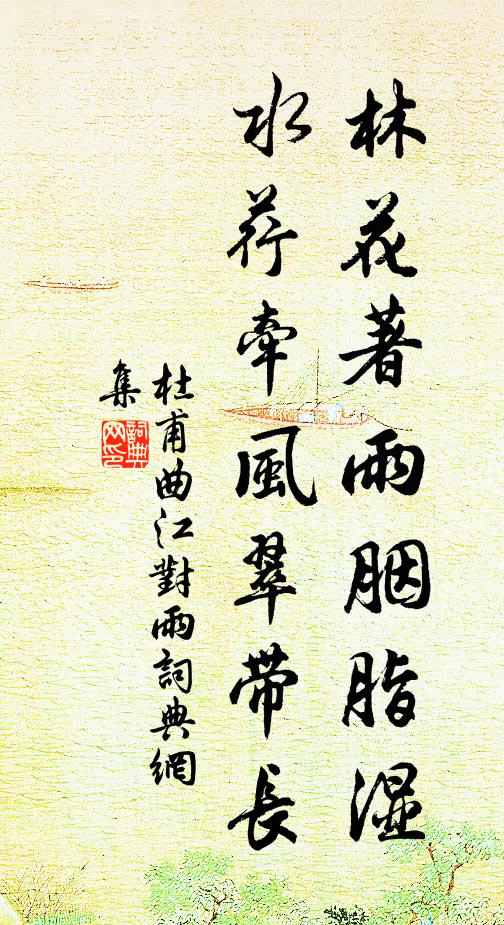 林花著雨胭脂湿
水荇牽風翠帶長
杜甫曲江對雨詞典網
集
詞典網印